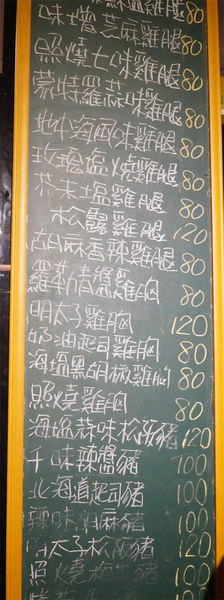 鹽雞腿80
味噌芝麻雞腿80
照燒七味雞腿80
蒙特羅蒜味雞腿80
地中海風味雞腿80
玫瑰塩燒雞腿80
芥末塩雞腿80
松露雞腿120
胡麻香辣雞腿80
羅勒青醬雞胸80
明太子雞胸120
奶油起司雞胸80
海塩黑胡椒雞胸80
照燒雞胸80
海塩蒜味松阪豬120
千味辣醬豬100
北海道起司豬100
辣味胡麻豬100
太子松阪豬120
照燒梅花豬100
100